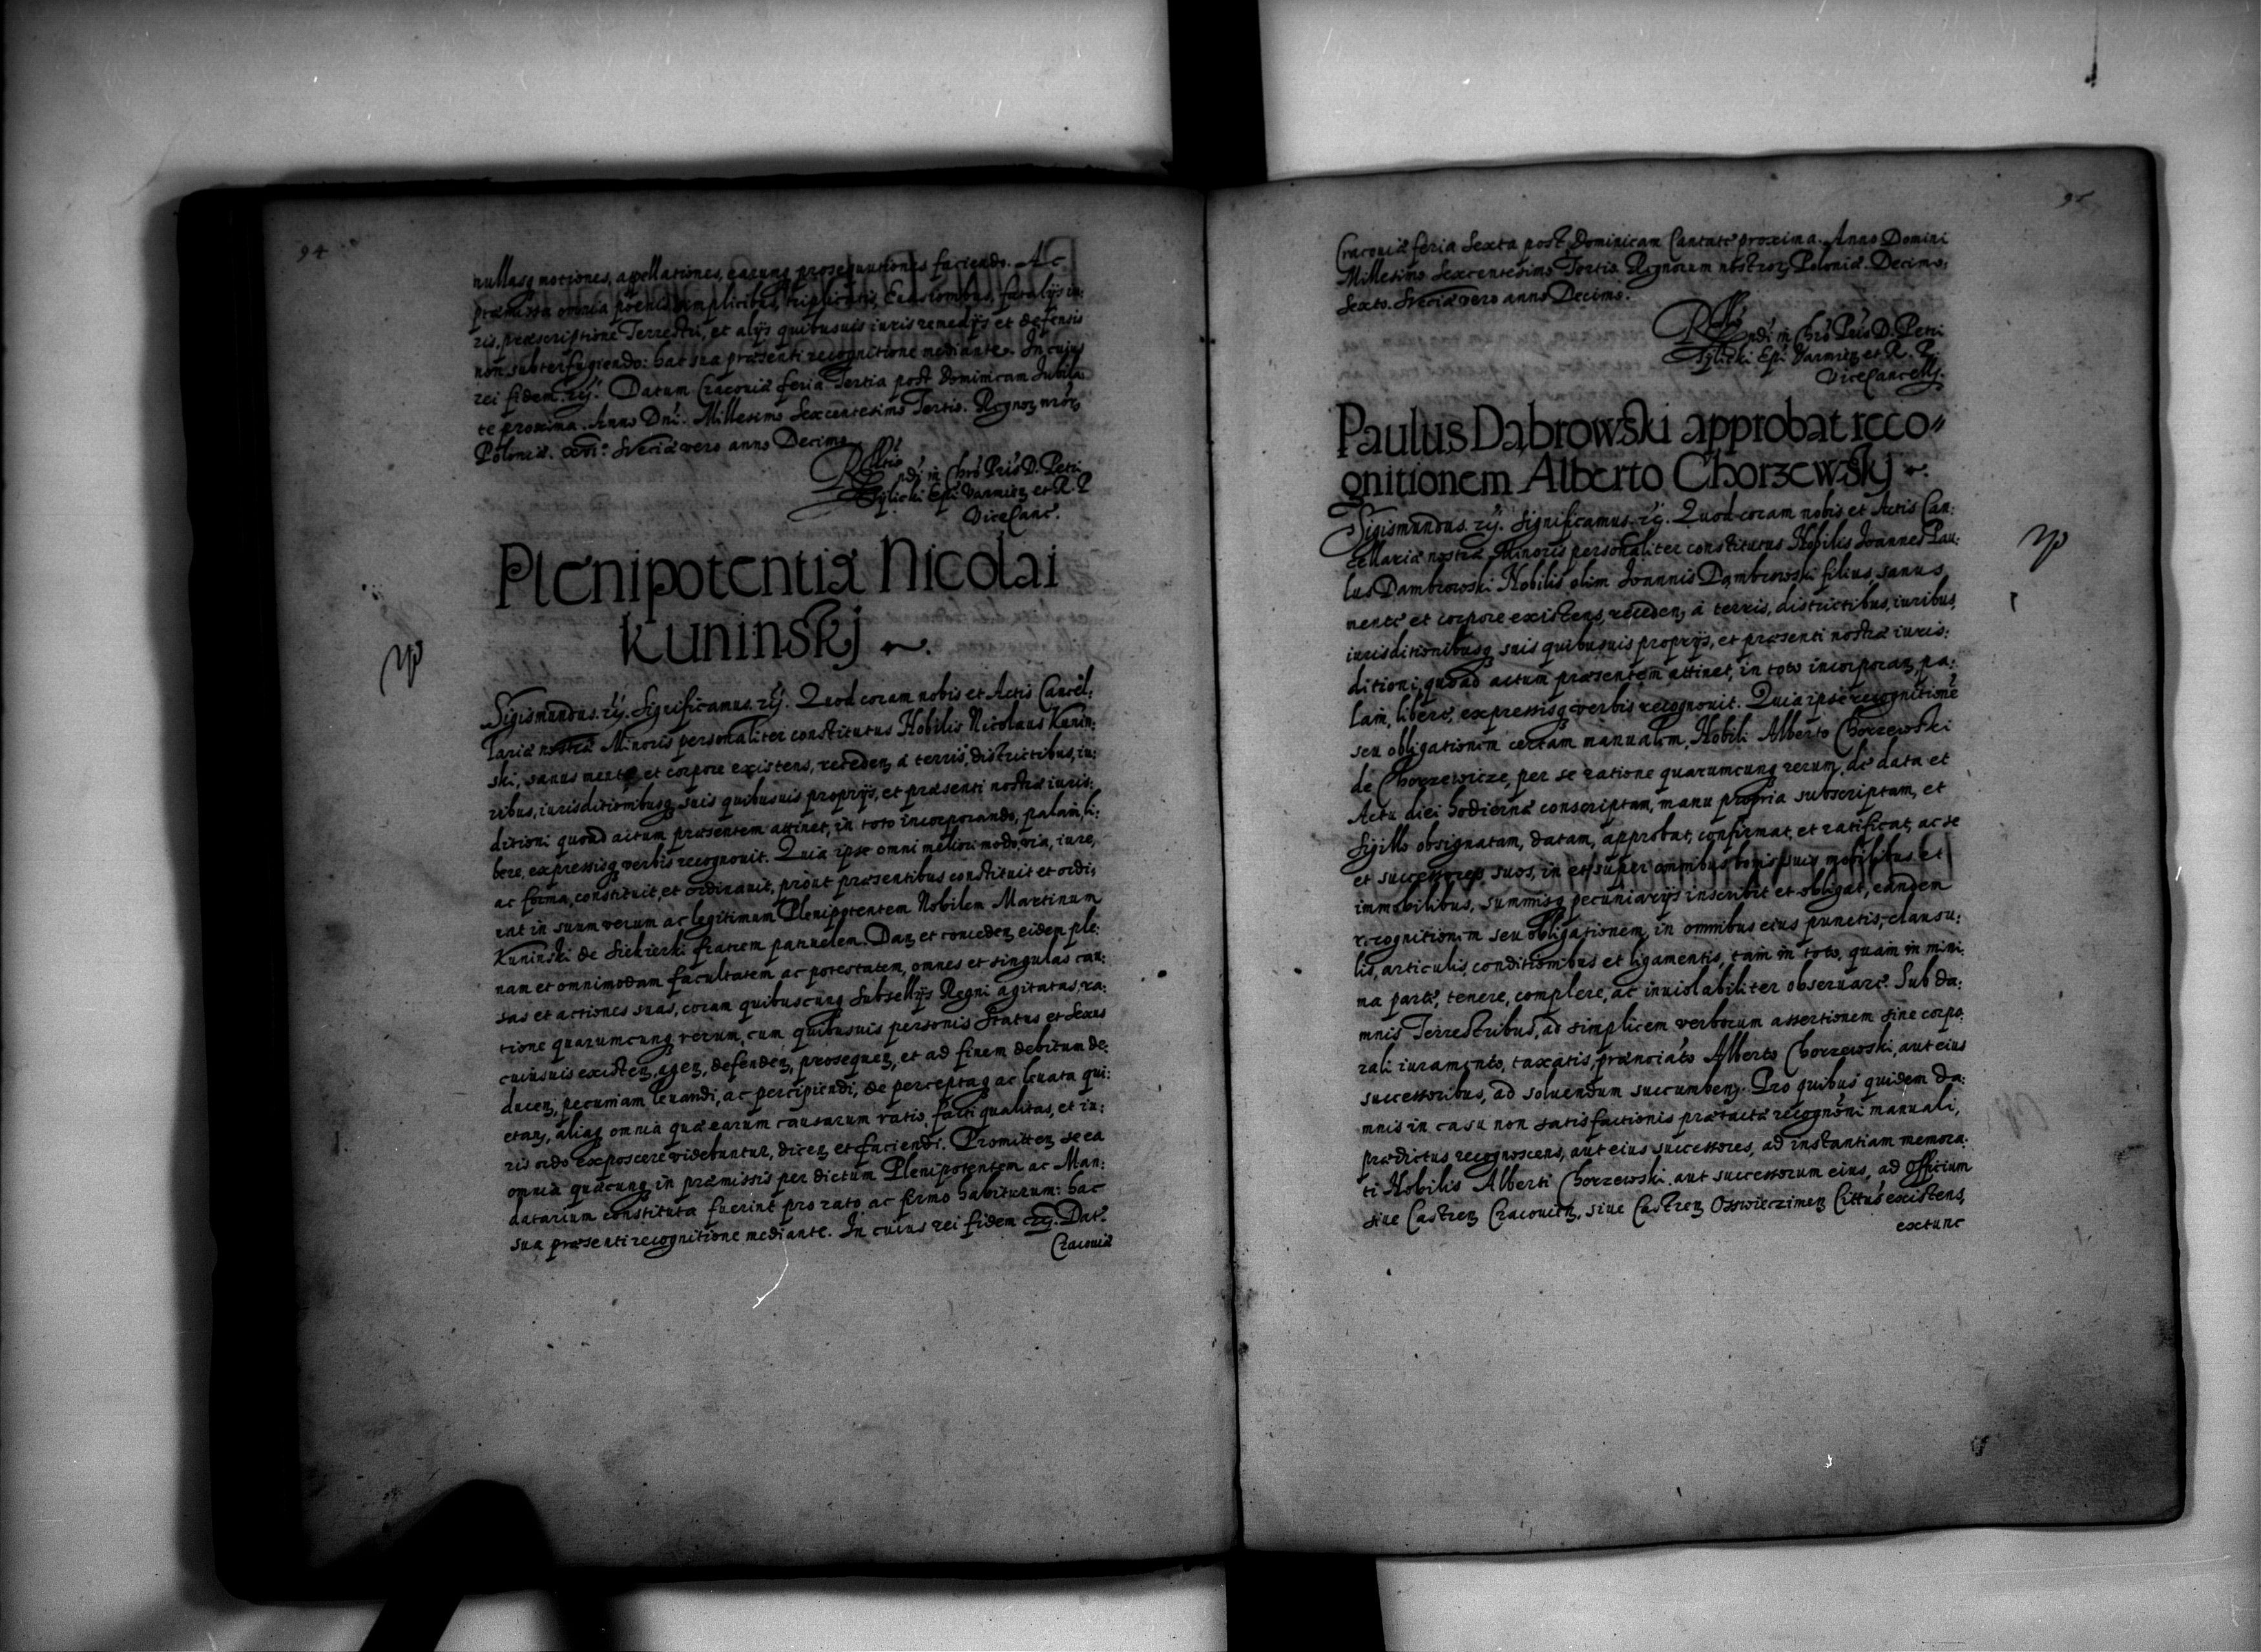 94
nullasq motiones, appellationes, earunq prosequutiones faciendo. Ac
præmissa omnia pœnis simplicibus, triplicatis, Euasionibus, fatalijs iu:
ris, præscriptione Terrestri, et alijs quibusuis iuris remedijs et defensis
non subterfugiendo: hac sua præsenti recognitione mediante. In cujus
rei fidem. rç. Datum Cracouiæ feria Tertia post Dominicam Jubila:
te proxima. Anno Dni. Millesimo Sexcentesimo Tertio. Regnoꝝ nroꝝ
Poloniæ. xvi.º Sveciæ vero anno Decimo.
Rellatio
ndi in Chro Pris D. Petri
Tylicki Epi. Varmieꝝ et R. P.
Vice Canc.
Plenipotentia Nicolai
Kuninskj
Sigismundus. rç. Significamus. rç. Quod coram nobis et Actis Cancel:
lariæ nostræ Minoris personaliter constitutus Nobilis Nicolaus Kunin:
ski, sanus mente et corpore existens, recedeꝝ a terris, districtibus, iu:
ribus, iurisditionibusq suis quibusuis proprijs, et præsenti nostræ iuris:
ditioni quoad actum præsentem attinet, in toto incorporando, palam, li:
bere, expressisq verbis recognouit. Quia ipse omni meliori modo, via, iure,
ac forma, constituit, et ordinauit, prout præsentibus constituit et ordi:
nat in suum verum ac legitimum Plenipotentem Nobilem Martinum
Kuninski de Siekierki fratrem patruelem. Daꝝ et concedeꝝ eidem ple:
nam et omnimodam facultatem ac potestatem, omnes et singulas cau:
sas et actiones suas, coram quibuscunq Subsellijs Regni agitatas, ra:
tione quarumcunq rerum, cum quibusuis personis Status et Sexus
cuiusuis existeꝝ, ageꝝ, defendeꝝ, prosequeꝝ, et ad finem debitum de:
duceꝝ, pecuniam leuandi, ac percipiendi, de perceptaq ac leuata qui:
etaꝝ, aliaq omnia quæ earum causarum ratio, facti qualitas, et iu:
ris ordo exposcere videbuntur, diceꝝ et faciendi. Promitteꝝ se ea
omnia quæcunq in præmissis per dictum Plenipotentem ac Man:
datarium constituta fuerint pro rato ac firmo habiturum: hac
sua præsenti recognitione mediante. In cuius rei fidem rç. Dat.
Cracouiæ
95
Cracouiæ feria Sexta post Dominicam Cantate proxima. Anno Domini
Millesimo Sexcentesimo Tertio. Regnorum nostroꝝ Poloniæ. Decimo:
Sexto. Sveciæ vero anno Decimo.
ndi in Chro Pris D. Petri
Tylicki Epi. Varmieꝝ et R. P.
Vice Cancellj.
Paulus Dąbrowski approbat reco"
gnitionem Alberto Chorzewskj
Sigismundus. rç. Significamus. rç. Quod coram nobis et Actis Can:
cellariæ nostræ Minoris personaliter constitutus Nobilis Joannes Pau:
lus Dambrowski Nobilis olim Joannis Dąmbrowski filius, sanus
mente et corpore existens, recedeꝝ à terris, districtibus, iuribus,
iurisditionibusq suis quibusuis proprijs, et præsenti nostræ iuris:
ditioni, quoad actum præsentem attinet, in toto incorporaꝝ, pa:
lam, libere, expressisq verbis recognouit. Quia ipse recognitione
seu obligationem certam manualem, Nobili Alberto Chorzewski
de Chorzewicze, per se ratione quarumcunq rerum, de data et
Actu diei hodiernæ conscriptam, manu propria subscriptam, et
Sigillo obsignatam, datam, approbat, confirmat, et ratificat, ac se
et successores suos, in et super omnibus bonis suis mobilibus et
immobilibus, summisq pecuniarijs inscribit et obligat, eandem
recognitionem seu obligationem, in omnibus eius punctis, clausu:
lis, articulis, conditionibus et ligamentis, tam in toto, quam in mini:
ma parte, tenere, complere, ac inuiolabiliter obseruare. Sub da:
mnis Terrestribus, ad simplicem verborum assertionem sine corpo:
rali iuramento, taxatis, prænoiato Alberto Chorzewski, aut eius
successoribus, ad soluendum succumbeꝝ. Pro quibus quidem da:
mnis in casu non satisfactionis prætactæ recognoni manuali,
prædictus recognoscens, aut eius successores, ad instantiam memora:
ti Nobilis Alberti Chorzewski aut successorum eius, ad Officium
siue Castreꝝ Cracouieꝝ, siue Castreꝝ Osswieczimeꝝ Cittus existens,
extunc